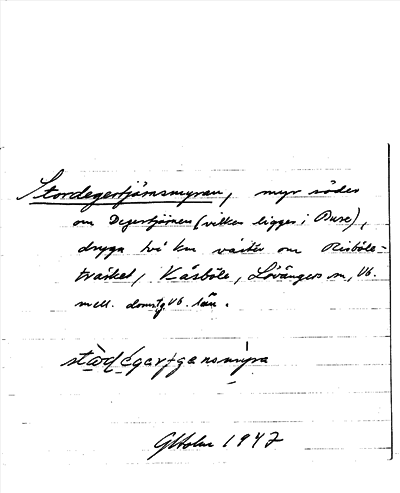 Stordegertjärnsmyran, myr söder
om Degertjärnen (vilken ligger i Bure),
dryga två km väster om Risböle-
träsket, Kåsböle, Lövångers sn, Vb.
mell. domsg. Vb. län.
GHolm 1947